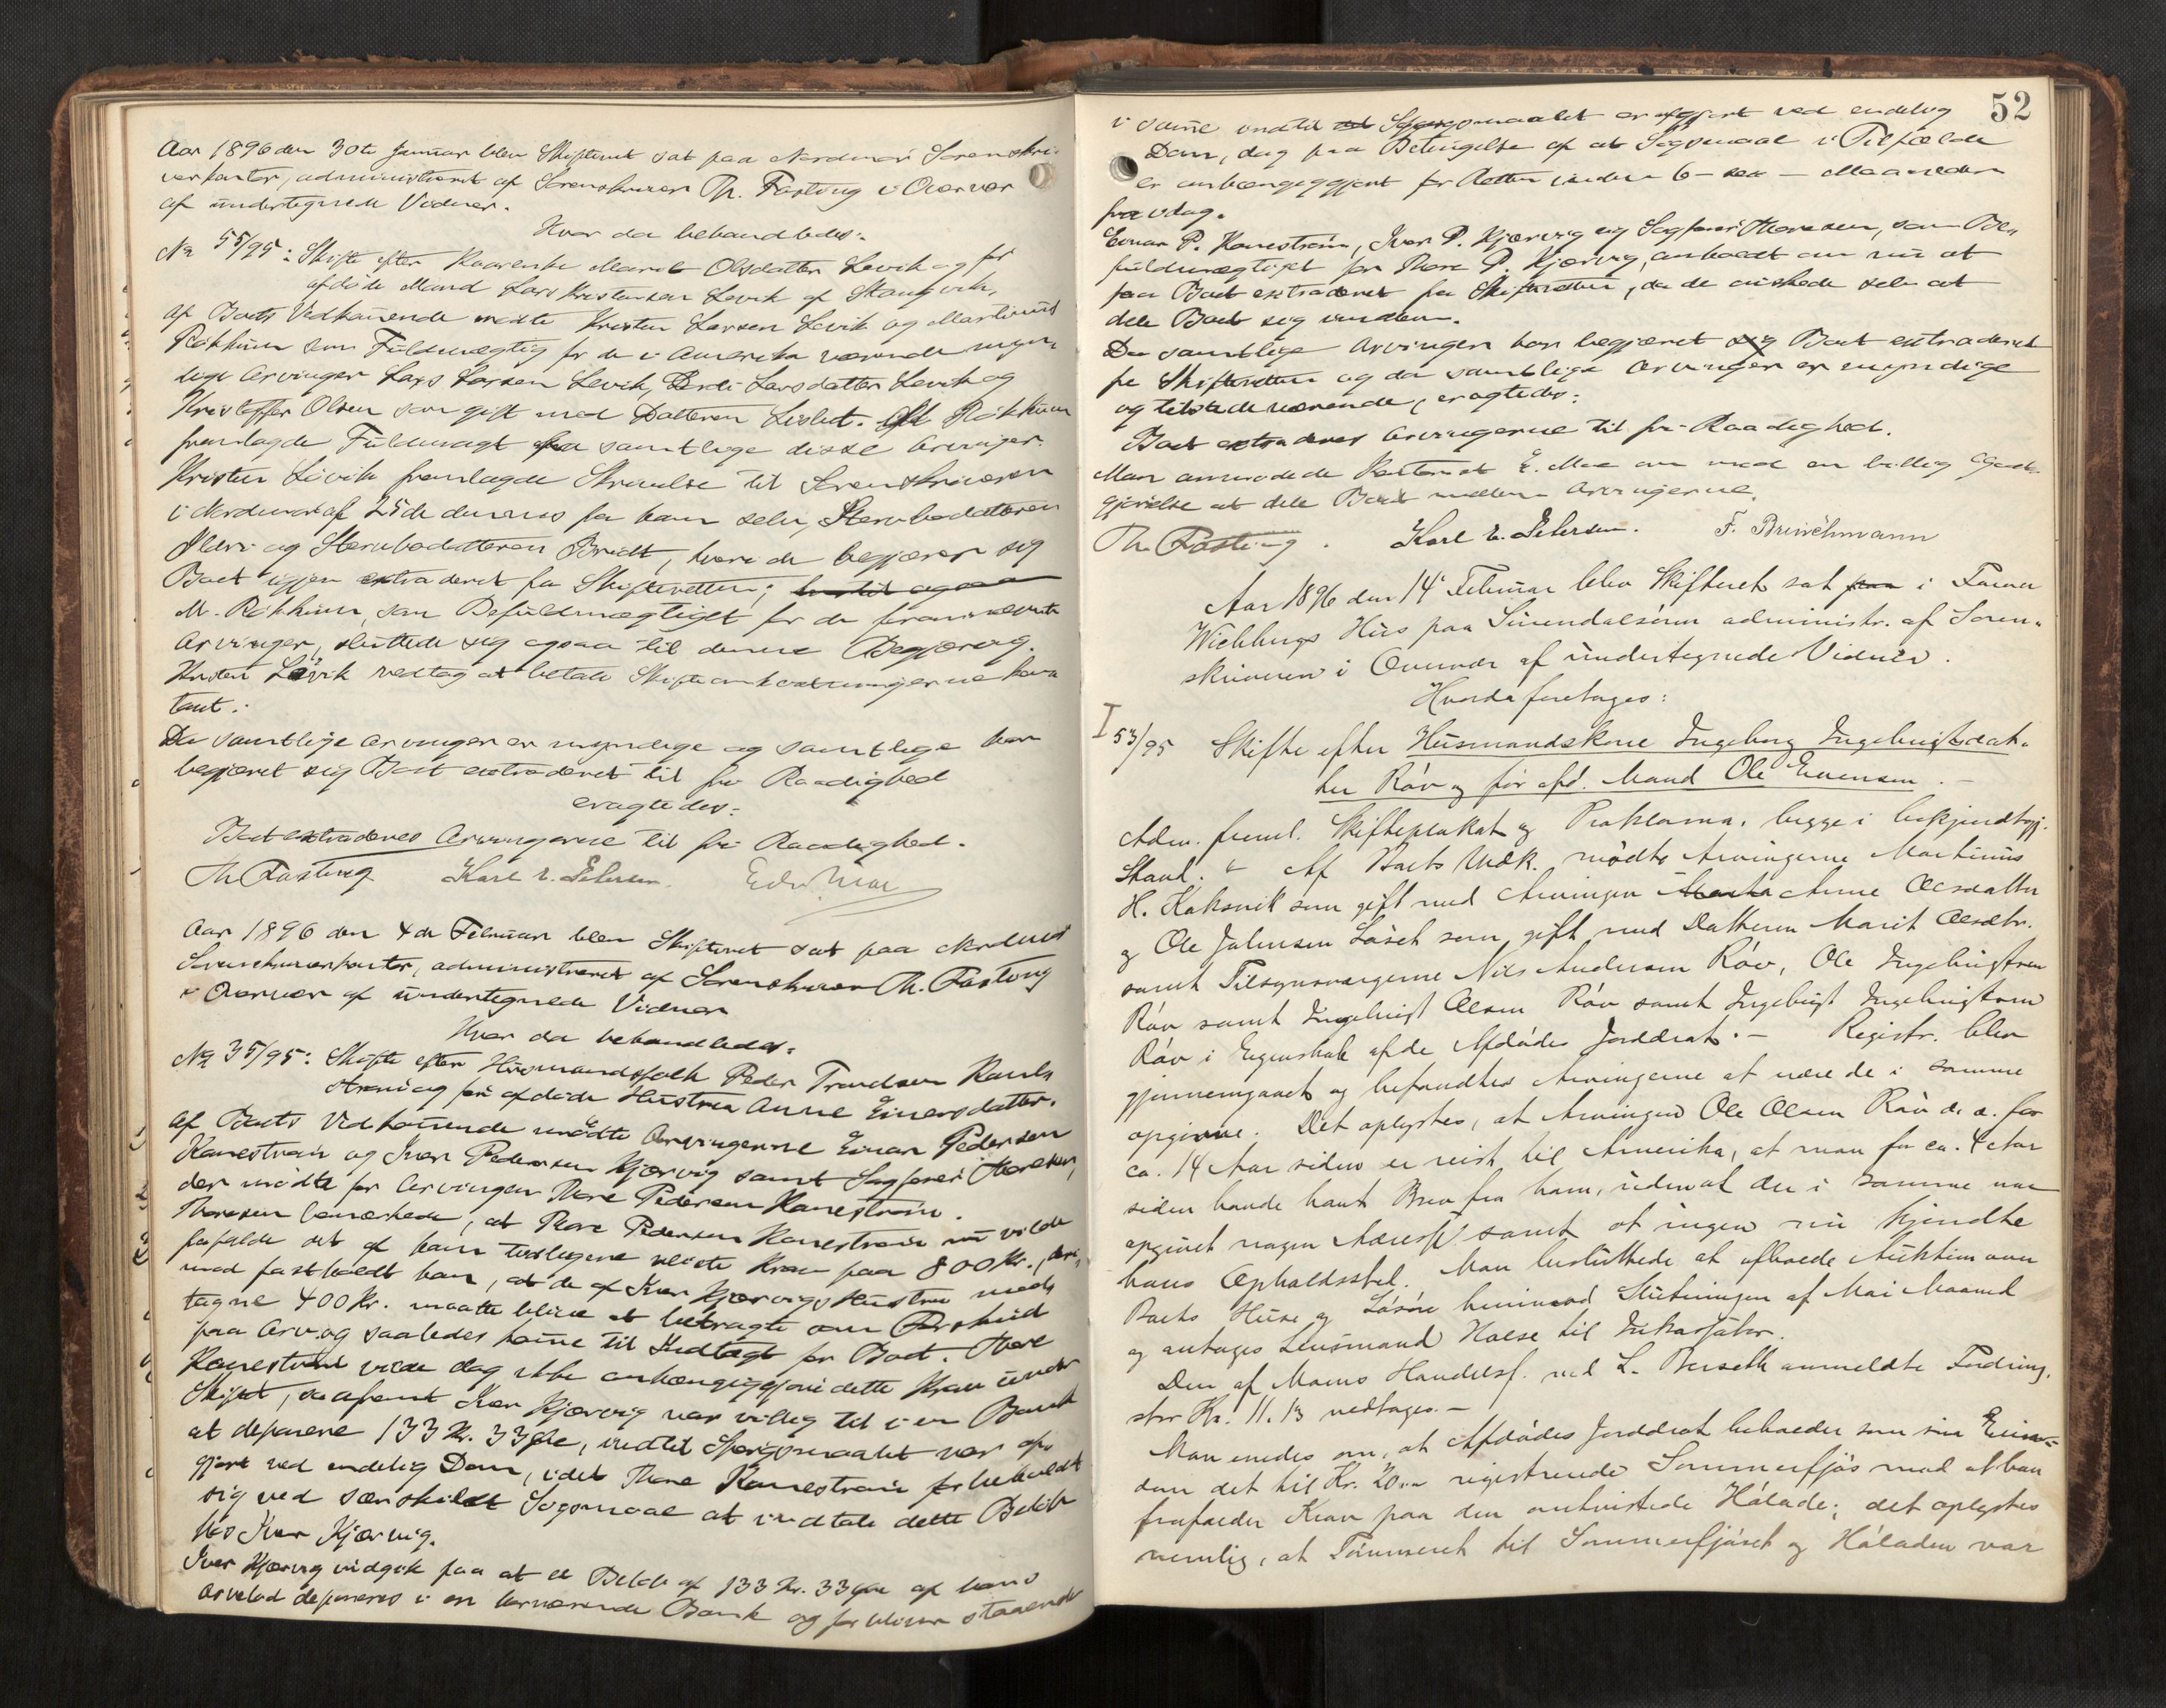 Aar 1896 den 30te Januar blev Skifteret sat paa Nordmør Sorenskri-
verkontor, administreret af Sorenskriver Th. Fasting i Overvær
af undertegnede Vidner.
Hvor da behandledes:
No 55/95: Skifte efter Kaarenke Marit Olsdatter Levik og før
afdøde Mand Lars Kristensen Levik af Stangvik,
af Boets Vedkommende mødte Kristen Larsen Levik og Martinus
Røkkum som Fuldmægtig for de i Amerika værende myn-
dige Arvinger Lars Larsen Levik, Larsdatter Levik og
Kristoffer Olsen som gift med Datteren Lisbet. Røkkum
fremlagde Fuldmagt fra samtlige disse Arvinger.
Kristen Levik fremlagde Skrivelse til Sorenskriveren
i Nordmør af 25de dennes fra ham selv, Stervbodatteren
Ildri og Stervbodatteren Bredt, hvori de begjærer sig
Boet igjen extraderet fra Skifteretten;
M. Røkkum, som Befuldmægtiget for de forannævnte
Arvinger, sluttede sig ogsaa til denne Begjæring.
Kristen Levik vedtog at betale Skifteomkostningerne kon-
tant.
Da samtlige Arvinger er myndige og samtlige har
begjæret sig Boet extraderet til fri Raadighed
eragtedes:
Boet extraderes Arvingerne til fri Raadighed.
Th. Fasting Karl E. Pehrsen. Edv. Moe
Aar 1896 den 4de Februar blev Skifteret sat paa Nordmør
Sorenskriverkontor, administreret af Sorenskriver Th. Fasting
i Overvær af undertegnede Vidner
Hvor da behandledes:
No 35/95: Skifte efter Husmandsfolk Peder Trondsen Kane-
strøm og før afdøde Hustru Anne Einersdatter.
af Boets Vedkommende mødte Arvingerne Einar Pedersen
Kanestrøm og Iver Pedersen Kjørvig samt Sagfører Thoresen,
der mødte for Arvingen Thore Pedersen Kanestrøm.
Thoresen bemærkede, at Thore Pedersen Kanestrøm nu vilde
frafalde det af ham tidligere reiste Krav paa 800 Kr., der-
imod fastholdt han, at de af Iver Kjørvigs Hustru mod-
tagne 400 Kr. maatte blive at betragte som Forskud
paa Arv og saaledes komme til Indtægt for Boet. Thore
Kanestrøm vilde dog ikke anhængiggjøre dette Krav under
Skiftet, saafremt Iver Kjørvig var villig til i en Bank
at deponere 133 Kr. 33 Øre, indtil Spørgsmaalet var af-
gjort ved endelig Dom, idet Thore Kanestrøm forbeholdt
sig ved særskildt Sogsmaal at indtale dette Beløb
hos Iver Kjørvig.
Iver Kjørvig indgik paa at et Beløb af 133 Kr. 33 Øre af hans
Arvelod deponeres i en herværende Bank og forbliver staaende
52
i samme indtil Spørgsmaalet er afgjort ved endelig
Dom, dog paa Betingelse af at Sogsmaal i Tilfælde
er anhængiggjort for Retten inden 6 - sex - Maaneder
fra idag.
Einar P. Kanestrøm, Iver P. Kjørvig og Sagfører Thoresen, som Be-
fuldmægtiget for Thore P. Kjørvig, anholdt om nu at
faa Boet extraderet fra Skifteretten, da de ønskede selv at
dele Boet sig imellem.
Da samtlige Arvinger har begjæret Boet extraderet
fra Skifteretten og da samtlige Arvinger er myndige
og tilstedeværende, eragtedes:
Boet extraderes Arvingerne til fri Raadighed.
Man anmodede Kontorist E. Moe om mod en billig Godt-
gjørelse at dele Boet mellem Arvingerne.
Th. Fasting. Karl E. Pehrsen. F. Bruichmann
Aar 1896 den 14 Februar blev Skifteret sat i Farver
Wiebergs Hus paa Surendalsøren administr. af Soren-
skriveren i Overvær af undertegnede Vidner.
Hvorda foretoges:
I 53/95 Skifte efter Husmandskone Ingeborg Ingebrigtsdat-
ter Røv og før afd. Mand Ole Evensen.-
Adm. freml. Skifteplakat og Proklama, begge i bekjendtgj.
Stand. - Af Boets Vedk. mødte Arvingerne Martinus
H. Kaksvik som gift med Arvingen Anne Olsdatter
og Ole Johnsen Løset som gift med Datteren Marit Olsdtr.
samt Tilsynsværgerne Nils Andersen Røv, Ole Ingebrigtsen
Røv samt Ingebrigt Olsen Røv samt Ingebrigt Ingebrigtsen
Røv i Egenskab af de Afdødes Jorddrot. - Registr. blev
gjennemgaaet og befandtes Arvingerne at være de i samme
opgivne. Det oplystes, at Arvingen Ole Olsen Røv d. æ. for
ca. 14 Aar siden er reist til Amerika, at man for ca. 4 Aar
siden havde havt Brev fra ham, uden at der i samme var
opgivet nogen Adresse samt at ingen nu kjendte
hans Opholdssted. Man besluttede at afholde Auktion over
Boets Huse og Løsøre henimod Slutningen af Mai Maaned
og antages Lensmand Halse til Inkassator.
Den af Moens Handelsf. ved L. Berseth anmeldte Fordring,
stor Kr. 11.13 vedtoges.-
Man enedes om, at Afdødes Jorddrot beholder som sin Eien-
dom det til Kr. 20.- registrerede Sommerfjøs mod at han
frafalder Krav paa den omtvistede Hølade; det oplystes
nemlig, at Tømmeret til Sommerfjøset og Høladen var